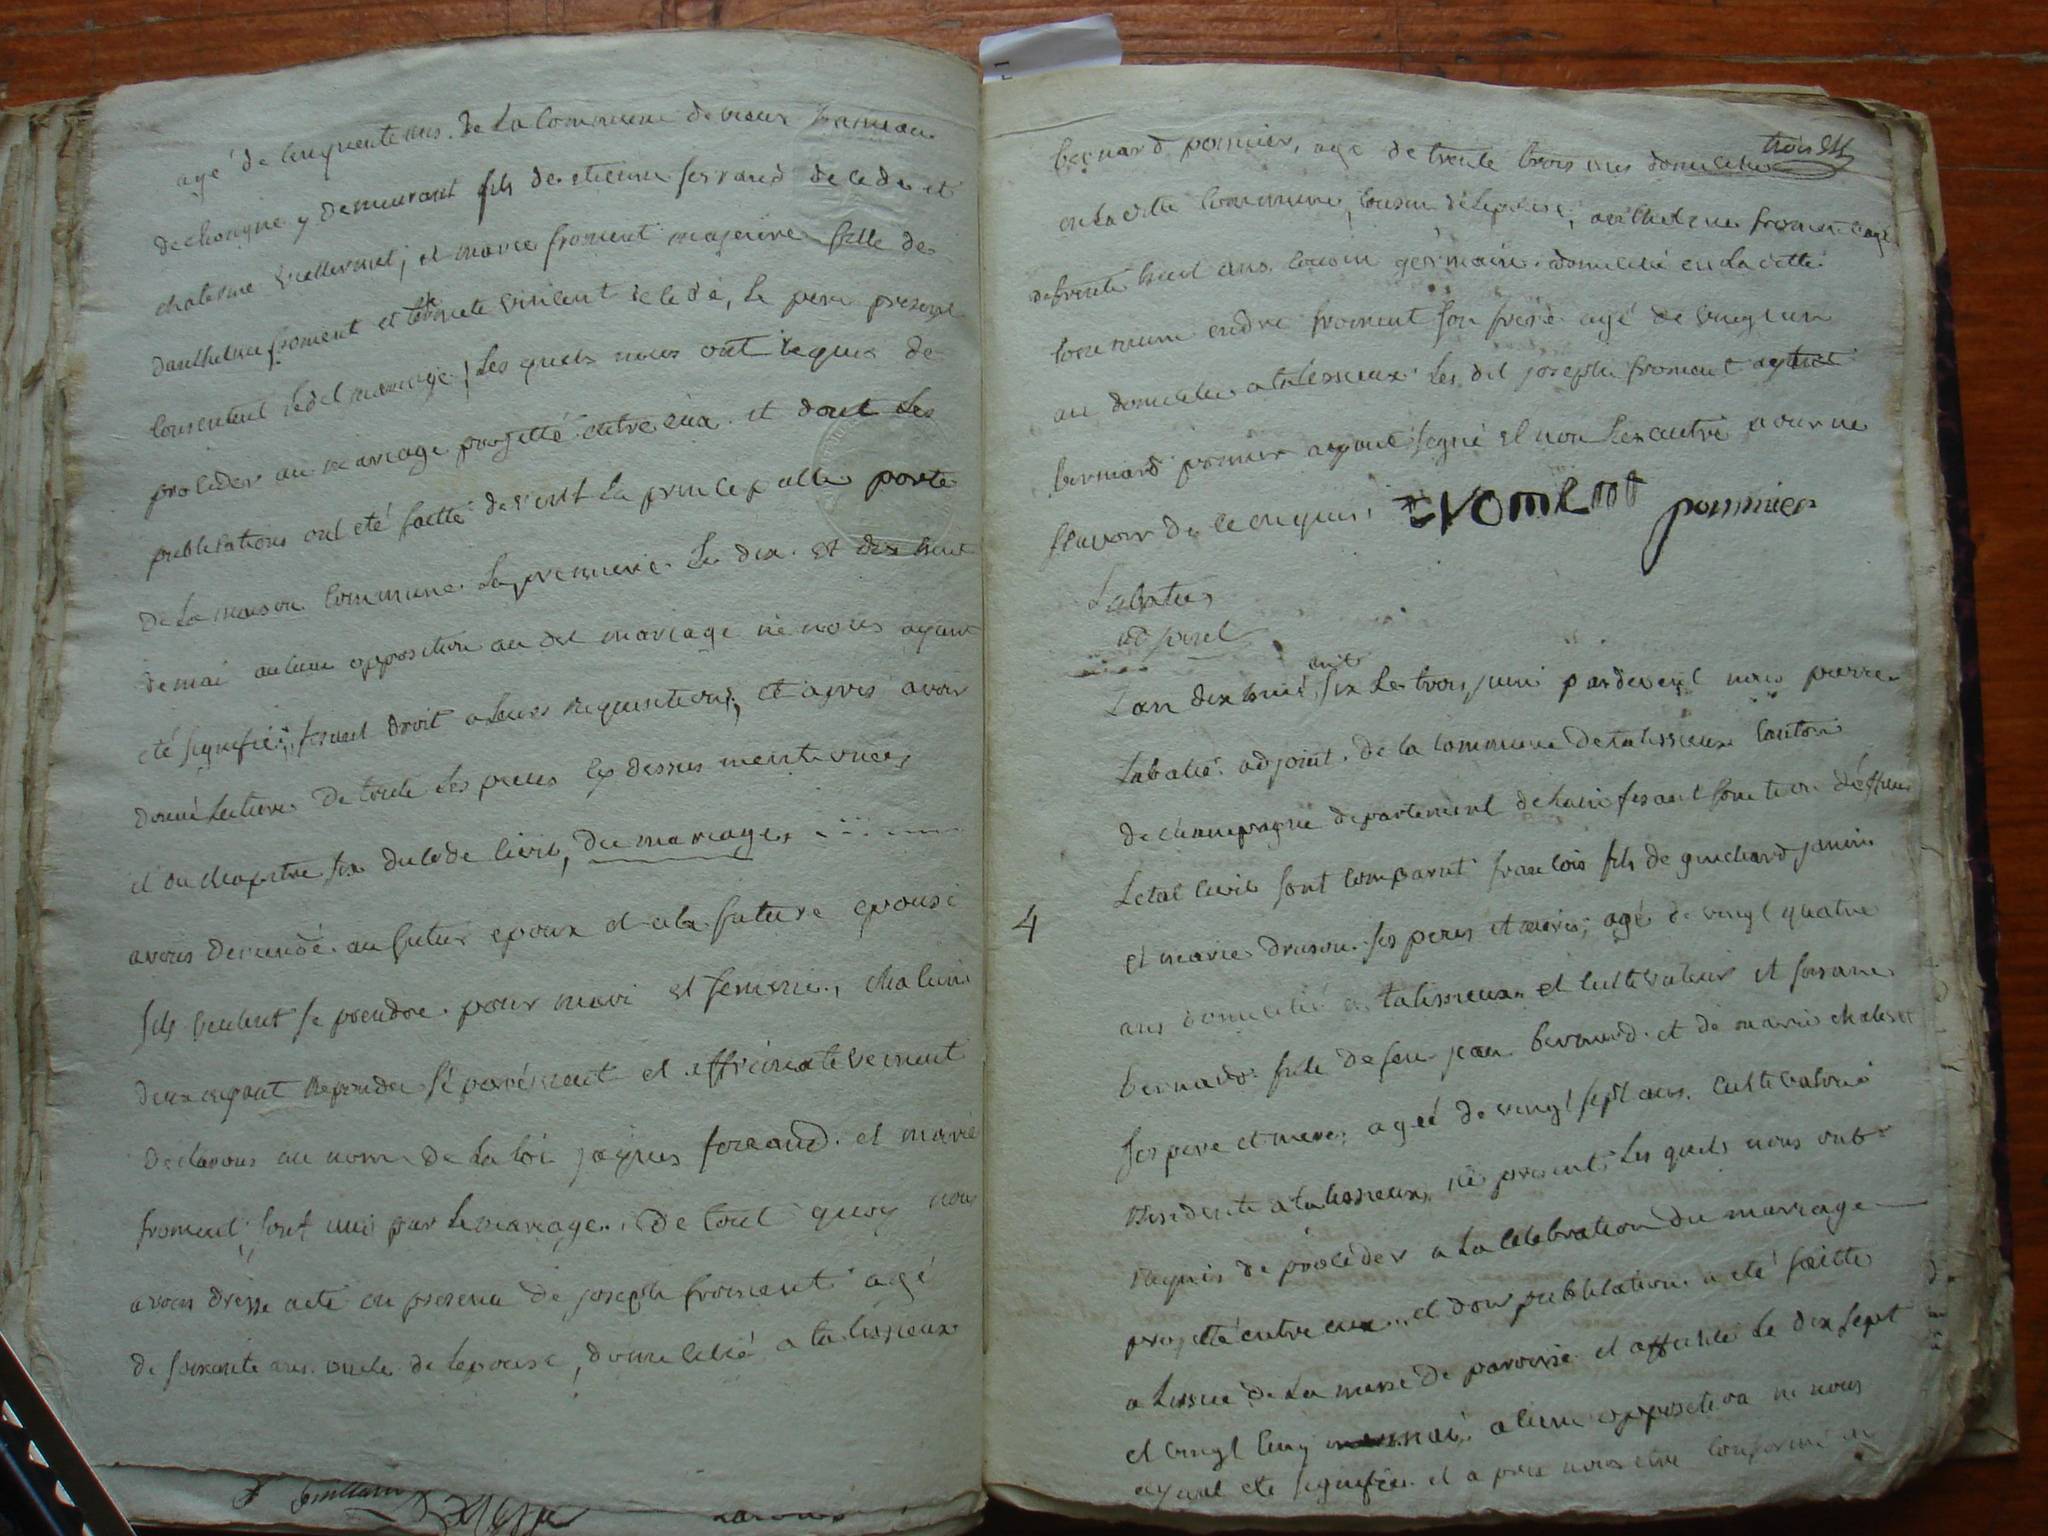 agé de cinquente ans. de la Commune de vieux hameau
de chongne y demeurant fils de etienne ferrand decedé et
et marie froment majeure fille de
danthelme froment et vincent decedé, le pere present
consentent ledit mariage, les quels nous ont requis de
proceder au mariage projetté entre eux. et dont les
publications ont été faitte devent la principalle porte
de la maison commune. La premiere le dix. et dix huit
de mai aucune opposition au dit mariage ne nous ayant
été signifiée, fesant droit a leurs requisitions, et apres avoir
donné lecture de toute les pieces cy dessus mentionées,
et du chapitre six du code civil, du mariage,
avons demandé au futur epoux et a la future epouse
sils veulent se prendre pour mari et femme, chacun
deux ayant repondu séparément et affirmativement
declarons au nom de la loi jaques ferrand et marie
froment, sont unis par le mariage. de tout quoy nous
avons dressé acte en presence de joseph froment agé
de soixente ans oncle de lepouse, domicilié a talissieux
trois
bernard pommier, agé de trente trois ans domicilié
en la ditte commune, cousin de lepouse, anthelme froment agé
de trente huit ans cousin germain domicilié en la ditte
commune andre froment son frere agé de vingt un
an domicilié a talissieux. les dit joseph froment
bernard pommier ayant signé et non les autre pour ne
scavoir de ce enquis. froment pommier
Labatie
adjoint
Lan dix huit cent six le trois juin pardevent nous pierre
Labatie adjoint de la commune de talissieux canton
de champagne departement de lain fesant fonction dofficier
Letat civil sont comparut francois fils de guichard janin
4
et marie druson ses peres et meres, agé de vingt quatre
ans domicilié a talissieux et cultivateur et
bernard fille de feu jean bernard et de marie
ses pere et mere, agée de vingt sept ans, cultivatrice
residente a talissieux, ici present, les quels nous ont
requis de procéder a la célébration du mariage
projetté entre eux et dont publication a été faitte
a lissue de la messe de paroisse et affiché le dix sept
et vingt cinq mai, aucune opposition ne nous
ayant été signifiée et a pres nous etre conformé au